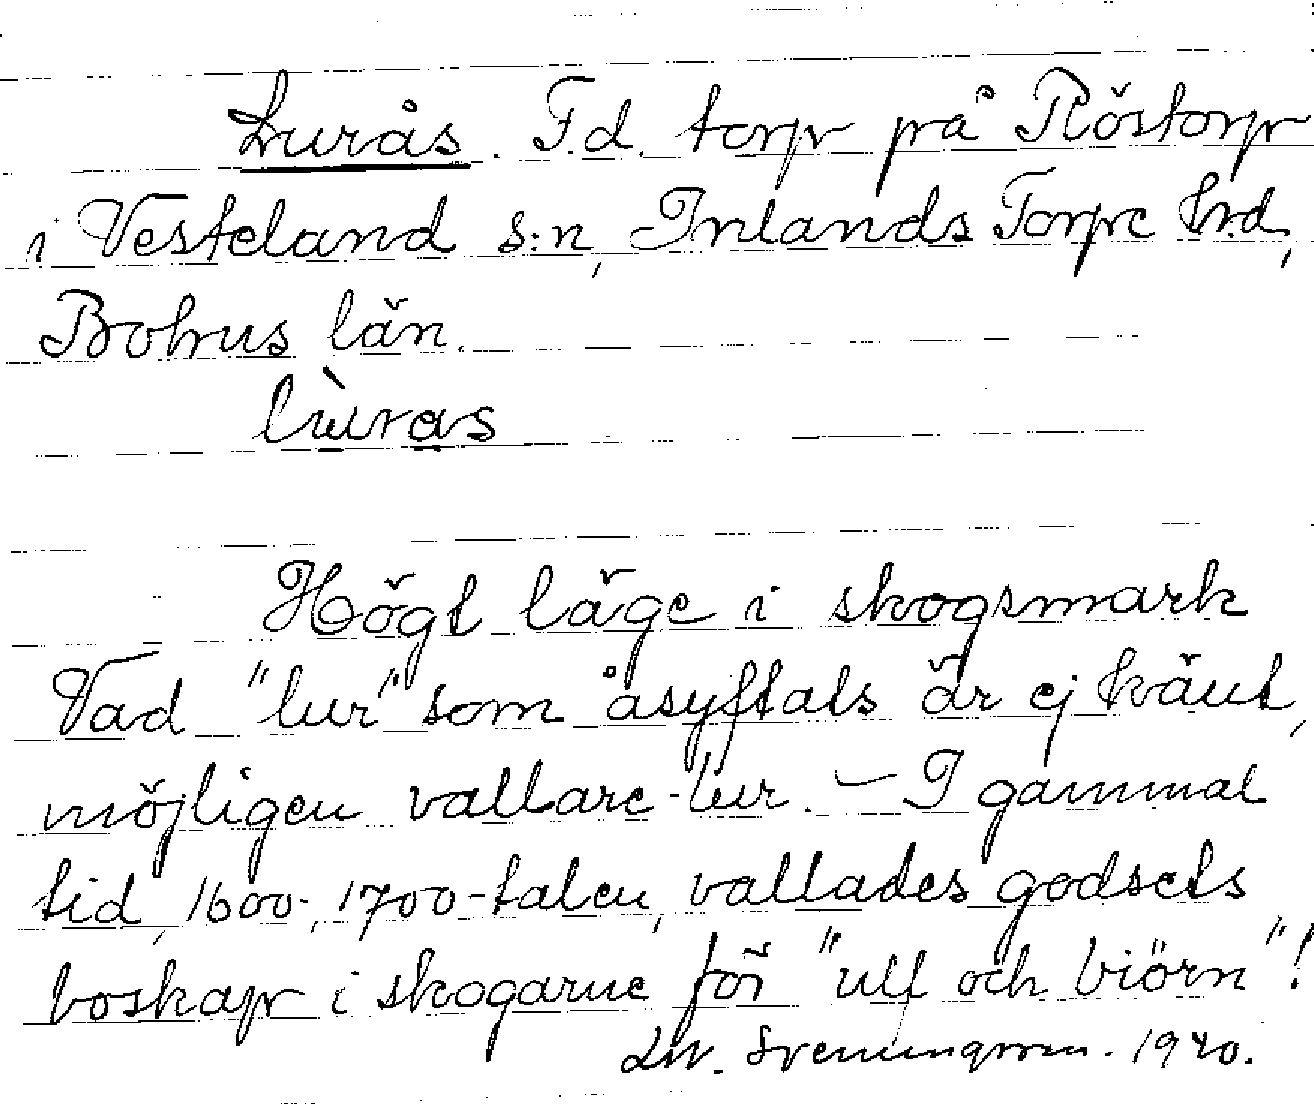 Lurås. F.d. torp på Röstorp
i Vesteland s:n, Inlands Torpe hrd,
Bohus län.
lùras
Högt läge i skogsmark
Vad "lur" som åsyftats är ej känt,
möjligen vallare-lur. – I gammal
tid, 1600-, 1700-talen, vallades godsets
boskap i skogarne för "ulf och biörn"!
1940.